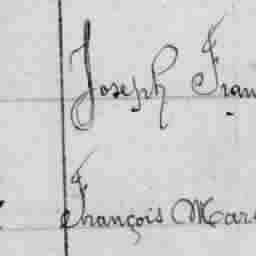 Joseph Fran
François Mar